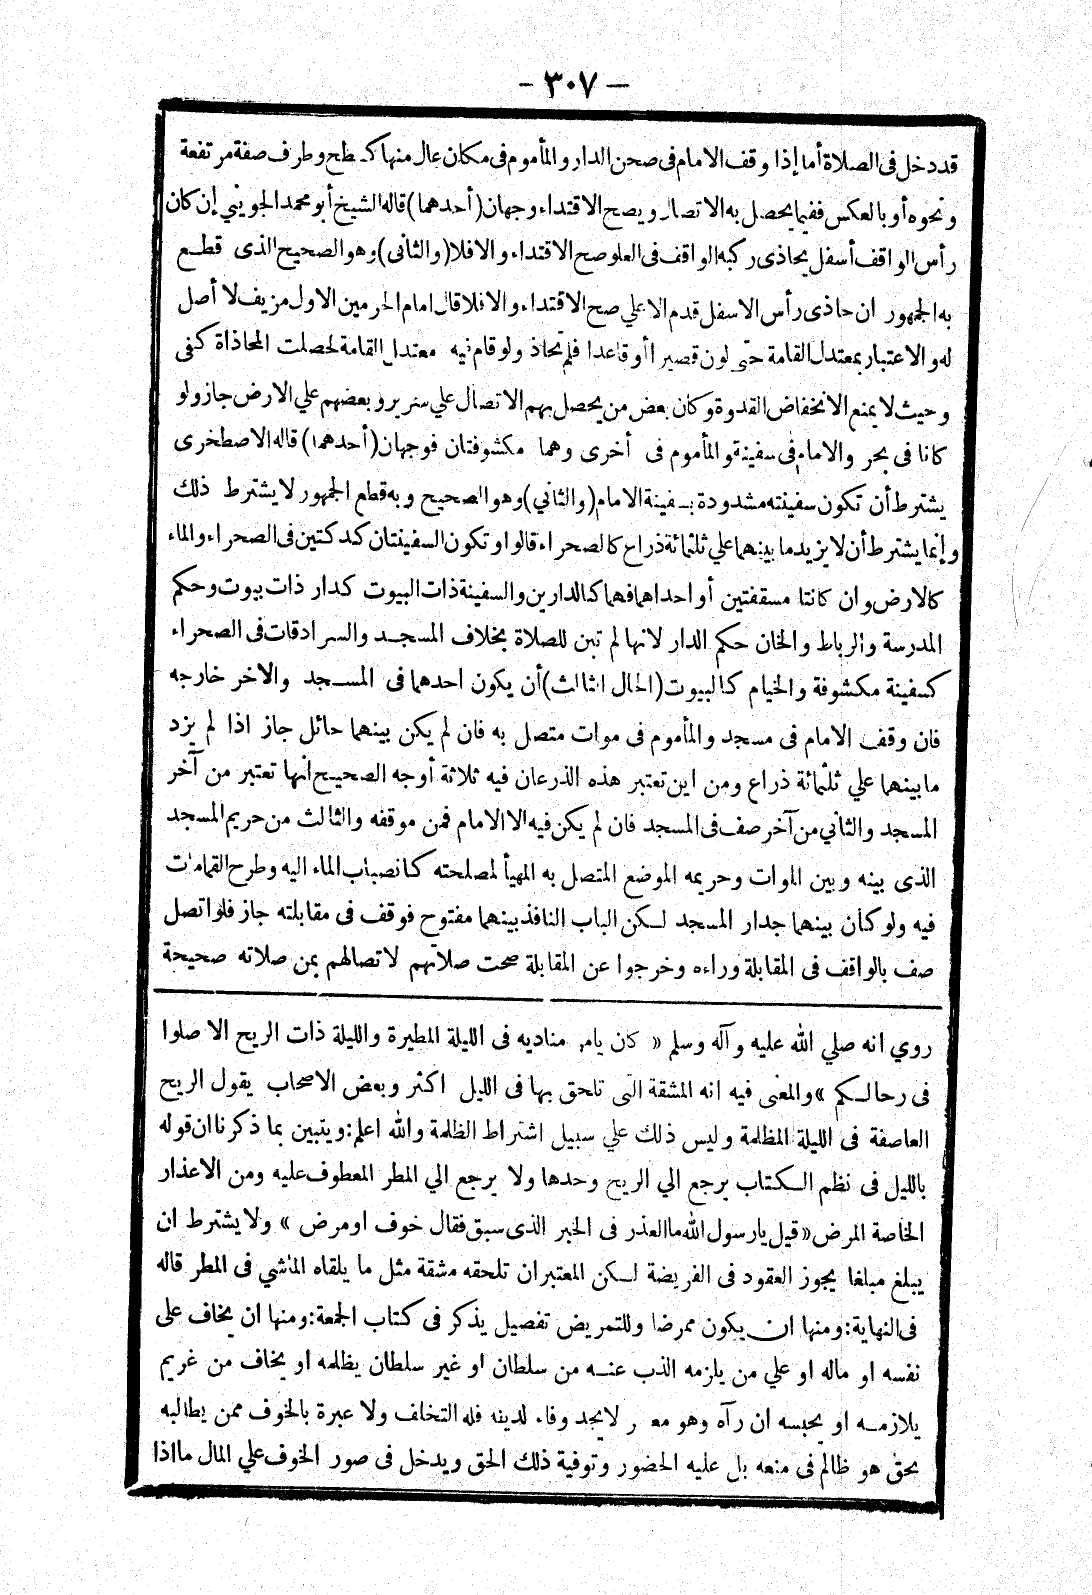 — ٣٠٧ —
قد دخل فى الصلاة أما إذا وقف الامام فى صحن الدار والمأموم فى مكان عال منها كسطح وطرف صفة مرتفعة
ونحوه أو بالعكس ففيما يحصل به الاتصال ويصح الاقتداء وجهان (أحدهما) قاله الشيخ أبو محمد الجويني إن كان
رأس الواقف أسفل يحاذى ركبه الواقف فى العلو صح الاقتداء والافلا (والثانى) وهو الصحيح الذى قطع
به الجمهور ان حاذى رأس الاسفل قدم الاعلي صح الاقتداء والافلا قال امام الحرمين الاول مزيف لا أصل
له والاعتبار بمعتدل القامة حتى لو كان قصيرا أو قاعدا فلم يحاذ ولو قام فيه معتدل القامة لحصلت المحاذاة كفى
وحيث لا يمنع الانخفاض القدوة وكان بعض من يحصل بهم الاتصال علي سرير وبعضهم علي الارض جاز ولو
كانا فى بحر والامام فى سفينة والمأموم فى أخرى وهما مكشوفتان فوجهان (أحدهما) قاله الاصطخرى
يشترط أن تكون سفينته مشدودة بسفينة الامام (والثاني) وهو الصحيح وبه قطع الجمهور لا يشترط ذلك
وإنما يشترط أن لا يزيد ما بينهما علي ثلثمائة ذراع كالصحراء قالوا وتكون السفينتان كدكتين فى الصحراء والماء
كالارض وان كانتا مسقفتين أو احداهما فهما كالدارين والسفينة ذات البيوت كدار ذات بيوت وحكم
المدرسة والرباط والخان حكم الدار لانها لم تبن للصلاة بخلاف المسجد والسرادقات فى الصحراء
كسفينة مكشوفة والخيام كالبيوت (الحال الثالث) أن يكون احدهما فى المسجد والاخر خارجه
فان وقف الامام فى مسجد والمأموم فى موات متصل به فان لم يكن بينهما حائل جاز اذا لم يزد
ما بينهما علي ثلثمائة ذراع ومن اين تعتبر هذه الذرعان فيه ثلاثة أوجه الصحيح انها تعتبر من آخر
المسجد والثاني من آخر صف فى المسجد فان لم يكن فيه الا الامام فمن موقفه والثالث من حريم المسجد
الذى بينه وبين الموات وحريمه الموضع المتصل به المهيأ لمصلحته كانصباب الماء اليه وطرح القمامات
فيه ولو كان بينهما جدار المسجد لكن الباب النافذ بينهما مفتوح فوقف فى مقابلته جاز فلو اتصل
صف بالواقف فى المقابلة وراءه وخرجوا عن المقابلة صحت صلاتهم لاتصالهم بمن صلاته صحيحة
روي انه صلي الله عليه وآله وسلم « كان يامر مناديه فى الليلة المطيرة والليلة ذات الريح الا صلوا
فى رحالكم » والمعنى فيه انه المشقة التى تلحق بها فى الليل اكثر وبعض الاصحاب يقول الريح
العاصفة فى الليلة المظلمة وليس ذلك علي سبيل اشتراط الظلمة والله اعلم: ويتبين بما ذكرنا ان قوله
بالليل فى نظم الكتاب يرجع الي الريح وحدها ولا يرجع الي المطر المعطوف عليه ومن الاعذار
الخاصة المرض « قيل يارسول الله ما العذر فى الخبر الذى سبق فقال خوف او مرض » ولا يشترط ان
يبلغ مبلغا يجوز العقود فى الفريضة لكن المعتبر ان تلحقه مشقة مثل ما يلقاه الماشي فى المطر قاله
فى النهاية: ومنها ان يكون ممرضا وللتمريض تفصيل يذكر فى كتاب الجمعة: ومنها ان يخاف على
نفسه او ماله او علي من يلزمه الذب عنه من سلطان او غير سلطان يظلمه او يخاف من غريم
يلازمه او يحبسه ان رآه وهو معسر لا يجد وفاء لدينه فله التخلف ولا عبرة بالخوف ممن يطالبه
بحق هو ظالم فى منعه بل عليه الحضور وتوفية ذلك الحق ويدخل فى صور الخوف علي المال ما اذا